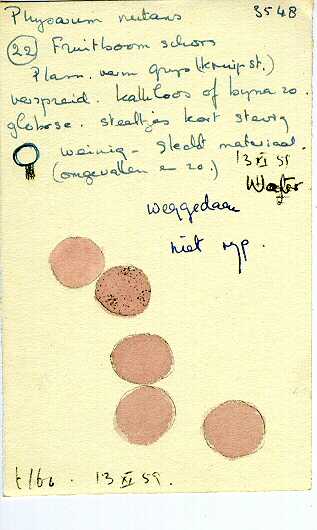 Physarum nutans 3548
(22) Fruitboom schors
Plasm. vum grijs (kruipst.)
verspreid. kalkloos of byna zo.
globose. steeltjes kort stevig
weinig - slecht materiaal.
(omgevallen en zo.) 13 XI 59
weggedaan
niet ryp.
t/bb. 13 XI 59.